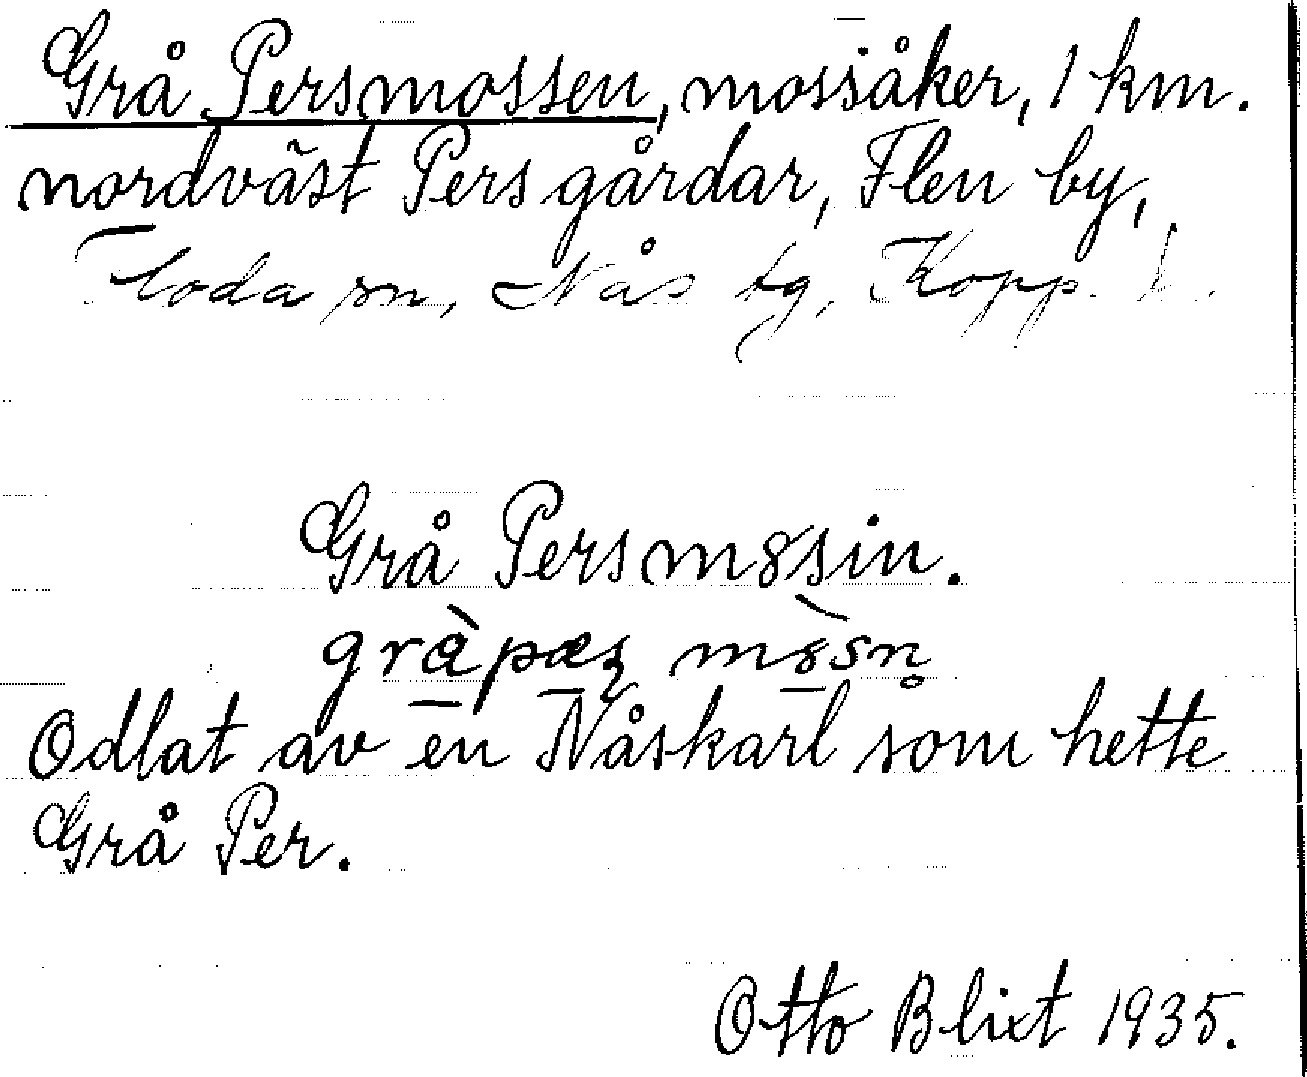 Grå Persmossen, mossåker, 1 km.
nordväst Persgårdar, Flen by,
Floda sn, Nås tg, Kopp. l.
Grå Persm8sin.
gràpæʂ m8̀sn̥
Odlat av en Nåskarl som hette
Grå Per.
Otto Blixt 1935.